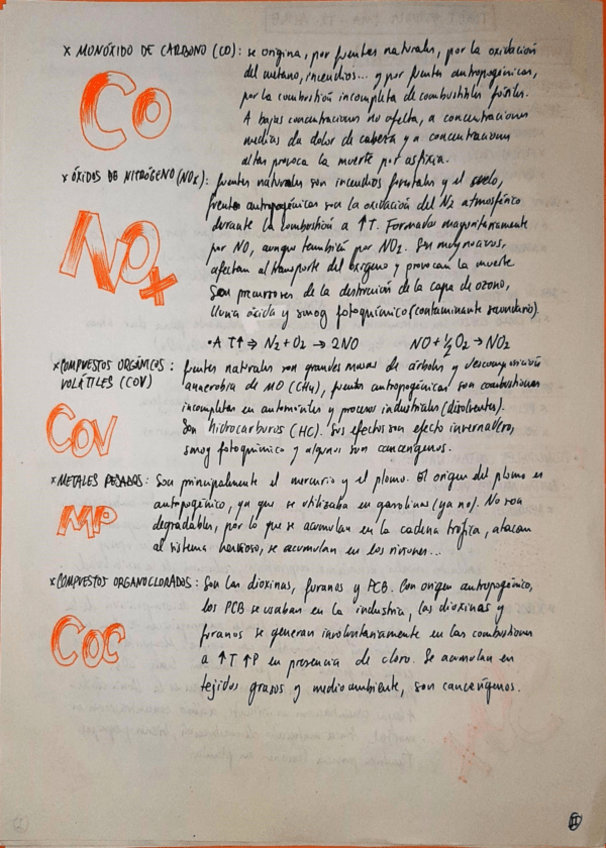 × MONÓXIDO DE CARBONO (CO): se origina, por fuentes naturales, por la oxidación
del metano, incendios... y por fuentes antropogénicas,
por la combustión incompleta de combustibles fósiles.
CO
A bajas concentraciones no afecta, a concentraciones
medias da dolor de cabeza y a concentraciones
altas provoca la muerte por asfixia.
× ÓXIDOS DE NITRÓGENO (NOx): fuentes naturales son incendios forestales y el suelo,
fuentes antropogénicas son la oxidación del N2 atmosférico
durante la combustión a ↑T. Formados mayoritariamente
NOx
por NO, aunque también por NO2. Son muy nocivos,
afectan al transporte del oxígeno y provocan la muerte.
Son precursores de la destrucción de la capa de ozono,
lluvia ácida y smog fotoquímico (contaminante secundario).
• A T↑ ⇒ N2 + O2 → 2NO NO + ½ O2 → NO2
× COMPUESTOS ORGÁNICOS VOLÁTILES (COV): fuentes naturales son grandes masas de árboles y descomposición
anaerobia de MO (CH4), fuentes antropogénicas son combustiones
incompletas en automóviles y procesos industriales (disolventes).
COV
Son hidrocarburos (HC). Sus efectos son efecto invernadero,
smog fotoquímico y algunos son cancerígenos.
× METALES PESADOS: Son principalmente el mercurio y el plomo. El origen del plomo es
antropogénico, ya que se utilizaba en gasolinas (ya no). No son
MP
degradables, por lo que se acumulan en la cadena trófica, atacan
al sistema nervioso, se acumulan en los riñones...
× COMPUESTOS ORGANOCLORADOS: Son las dioxinas, furanos y PCB. Con origen antropogénico,
los PCB se usaban en la industria, las dioxinas y
COC
furanos se generan involuntariamente en las combustiones
a ↑T ↑P en presencia de cloro. Se acumulan en
tejidos grasos y medio ambiente, son cancerígenos.